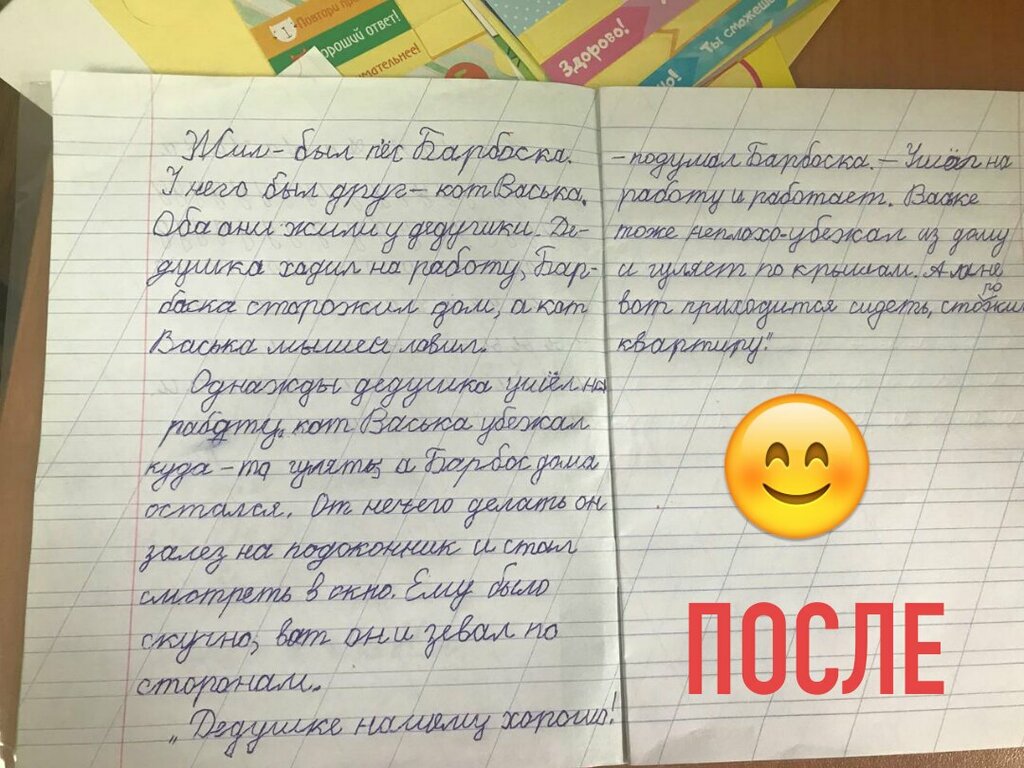 Повтори пра
хороший ответ!
имательнее!
Здорово!
Ты сможешь
но!
Жил-был пёс Барбоска.
У него был друг - кот Васька.
Оба они жили у дедушки. Де-
душка ходил на работу, Бар-
боска сторожил дом, а кот
Васька мышей ловил.
Однажды дедушка ушёл на
работу, кот Васька убежал
куда-то гулять, а Барбос дома
остался. От нечего делать он
залез на подоконник и стал
смотреть в окно. Ему было
скучно, вот он и зевал по
сторонам.
„Дедушке нашему хорошо!
- подумал Барбоска. - Ушёл на
работу и работает. Ваське
тоже неплохо-убежал из дому
и гуляет по крышам. А мне
вот приходится сидеть, сторожить
квартиру."
ПОСЛЕ